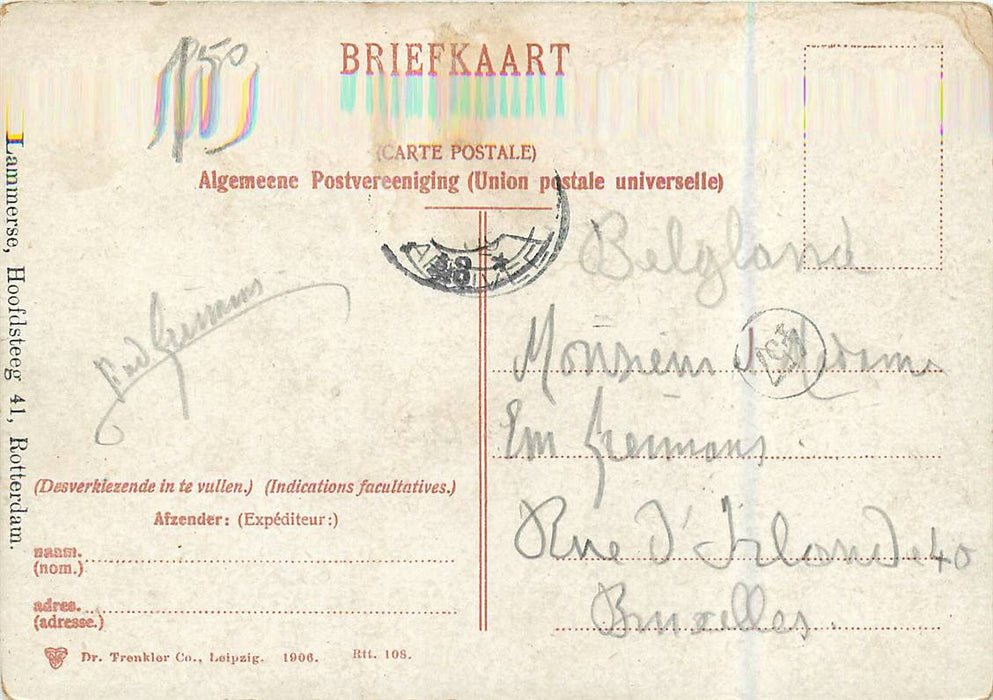 BRIEFKAART
(CARTE POSTALE)
Algemeene Postvereeniging (Union postale universelle)
Lammerse, Hoofdsteeg 41, Rotterdam.
Monsieur
Em
Rue d'Irlande 40
Bruxelles
(Desverkiezende in te vullen.) (Indications facultatives.)
Afzender: (Expéditeur:)
naam.
(nom.)
adres.
(adresse.)
Dr. Trenkler Co., Leipzig. 1906. Rtt. 108.